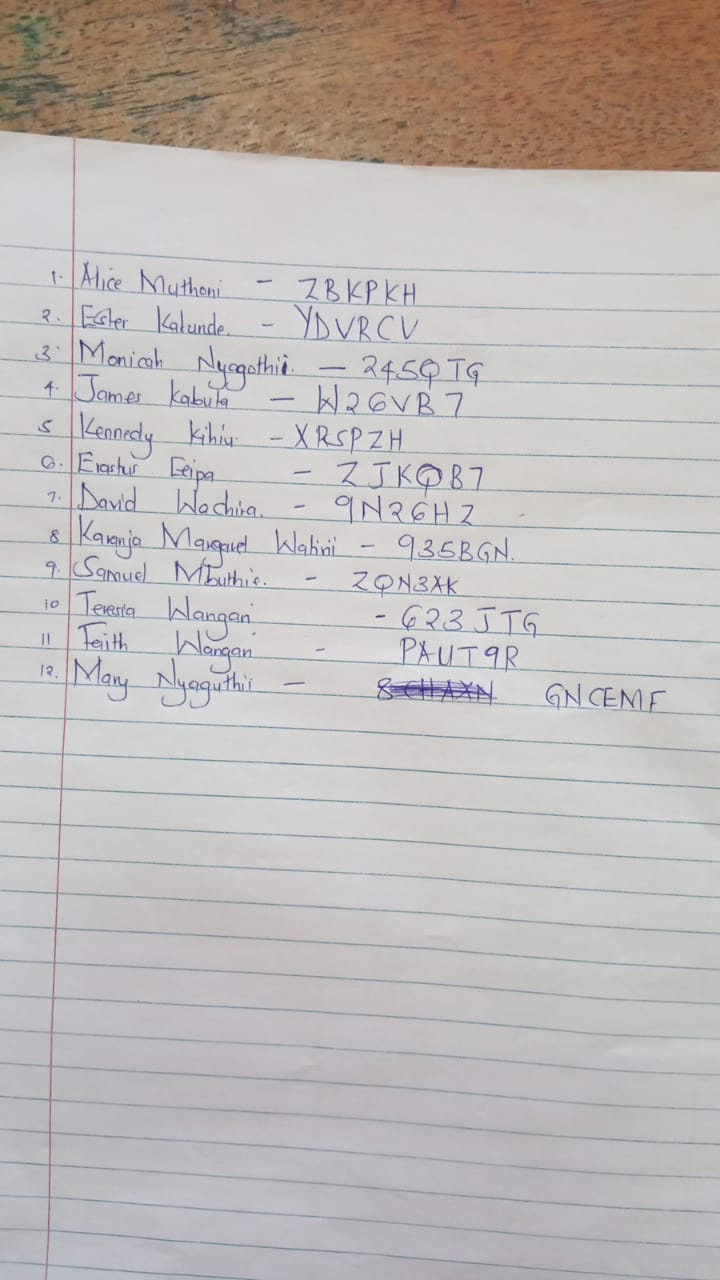 1. Alice Muthoni - ZBKPKH
2. Ester Kalunde. - YDVRCV
3. Monicah Nyagothii. - 245QTG
4. James Kabuta - W26VB7
5 Kennedy Kihiu - XRSPZH
6. Erastus Eeipa - ZJKQB7
7. David Wachira. - 9N26HZ
8 Karanja Margaret Watiri - 935BGN.
9. Samuel Mbuthie. - ZQN3AK
10 Teresia Wangari - 623JTG
11 Faith Wangari - PAUT9R
12. Mary Nyaguthii - GNCEMF